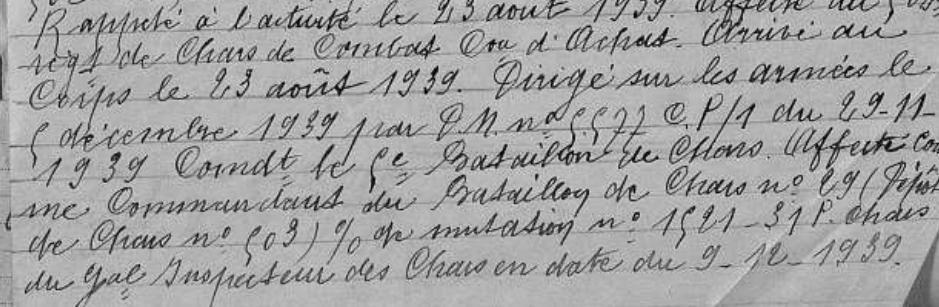 Rappelé à l'activité le 23 août 1939. Affecté au 503e
régt de Chars de Combat Con d'Achat. Arrivé au
Corps le 23 août 1939. Dirigé sur les armées le
5 décembre 1939 par D.M. no 5577 C.P/1 du 29-11-
1939 Comdt le 5e Bataillon de Chars. Affecté com
me Commandant du Bataillon de Chars no 29 (Dépôt
de Chars no 503) % de mutation no 1521-31 P. chars
du Gal Inspecteur des Chars en date du 9-12-1939.